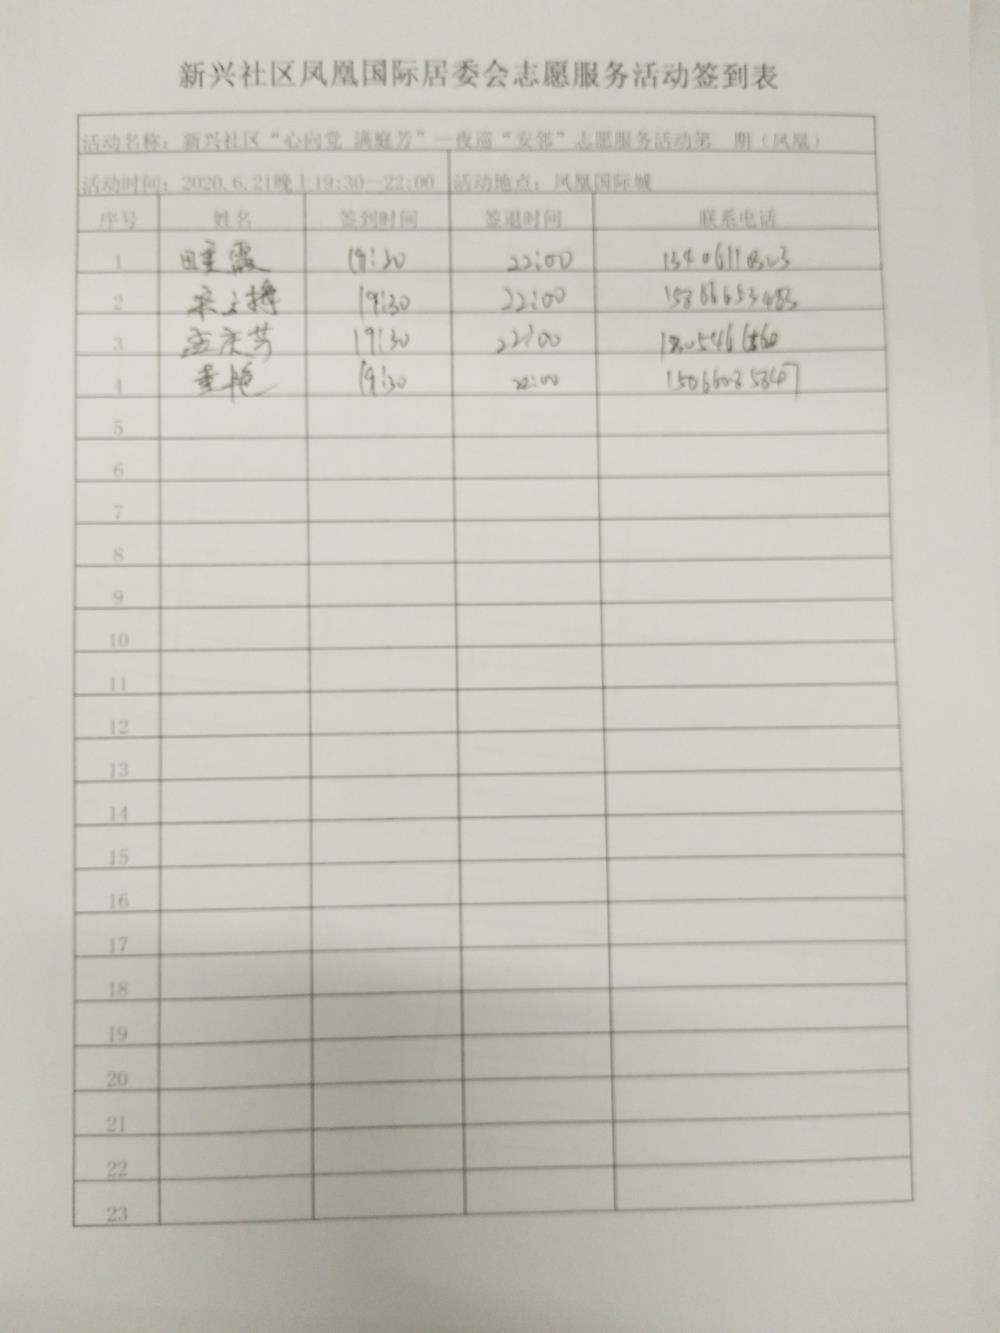 新兴社区凤凰国际居委会志愿服务活动签到表
活动名称：新兴社区“心向党 满庭芳”—夜巡“安邻”志愿服务活动第 期（凤凰）
活动时间：2020.6.21晚上19:30—22:00 活动地点：凤凰国际城
序号 姓名 签到时间 签退时间 联系电话
1 霞 19:30 22:00
2 19:30 22:00
3 孟庆芳 19:30 22:00
4 董艳 19:30 22:00
5
6
7
8
9
10
11
12
13
14
15
16
17
18
19
20
21
22
23